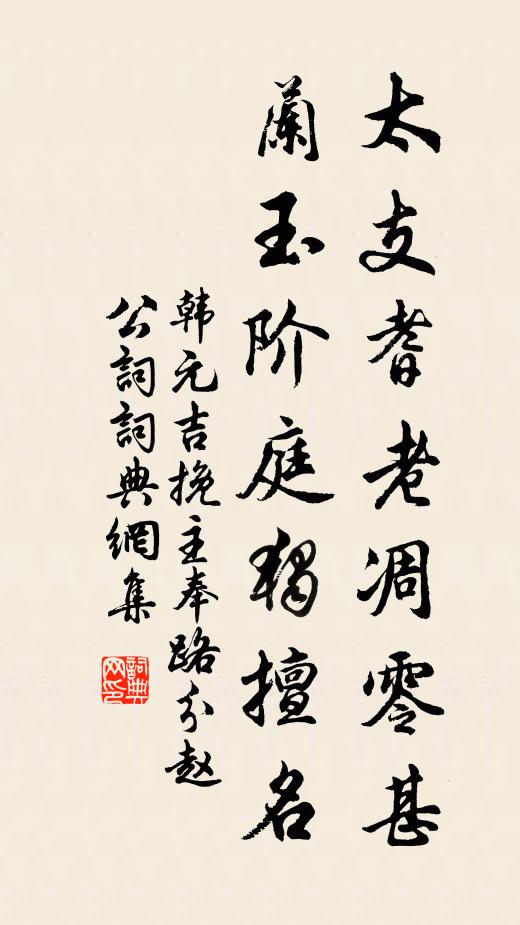 太支耆老凋零甚
蘭玉阶庭獨擅名
韩元吉挽主奉路分赵
公詞詞典網集
詞典网印